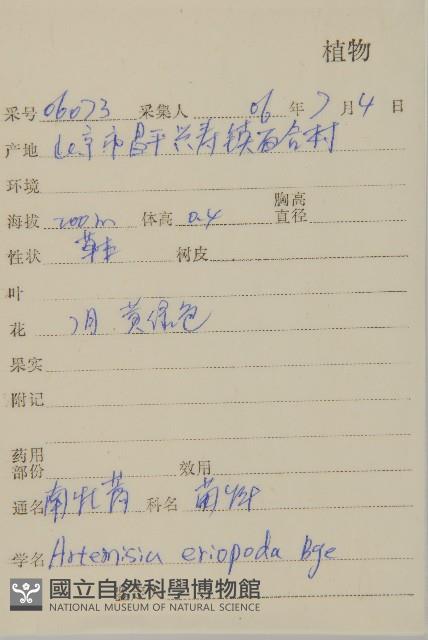 植物
采号 06073 采集人 06 年 7 月 4 日
产地 北京市昌平兴寿镇百合村
环境
海拔 200m 体高 0.4 胸高直径
性状 草本 树皮
叶
花 7月 黄绿色
果实
附记
药用部份 效用
通名 南牡蒿 科名 菊科
学名 Artemisia eriopoda Bge
國立自然科學博物館
NATIONAL MUSEUM OF NATURAL SCIENCE